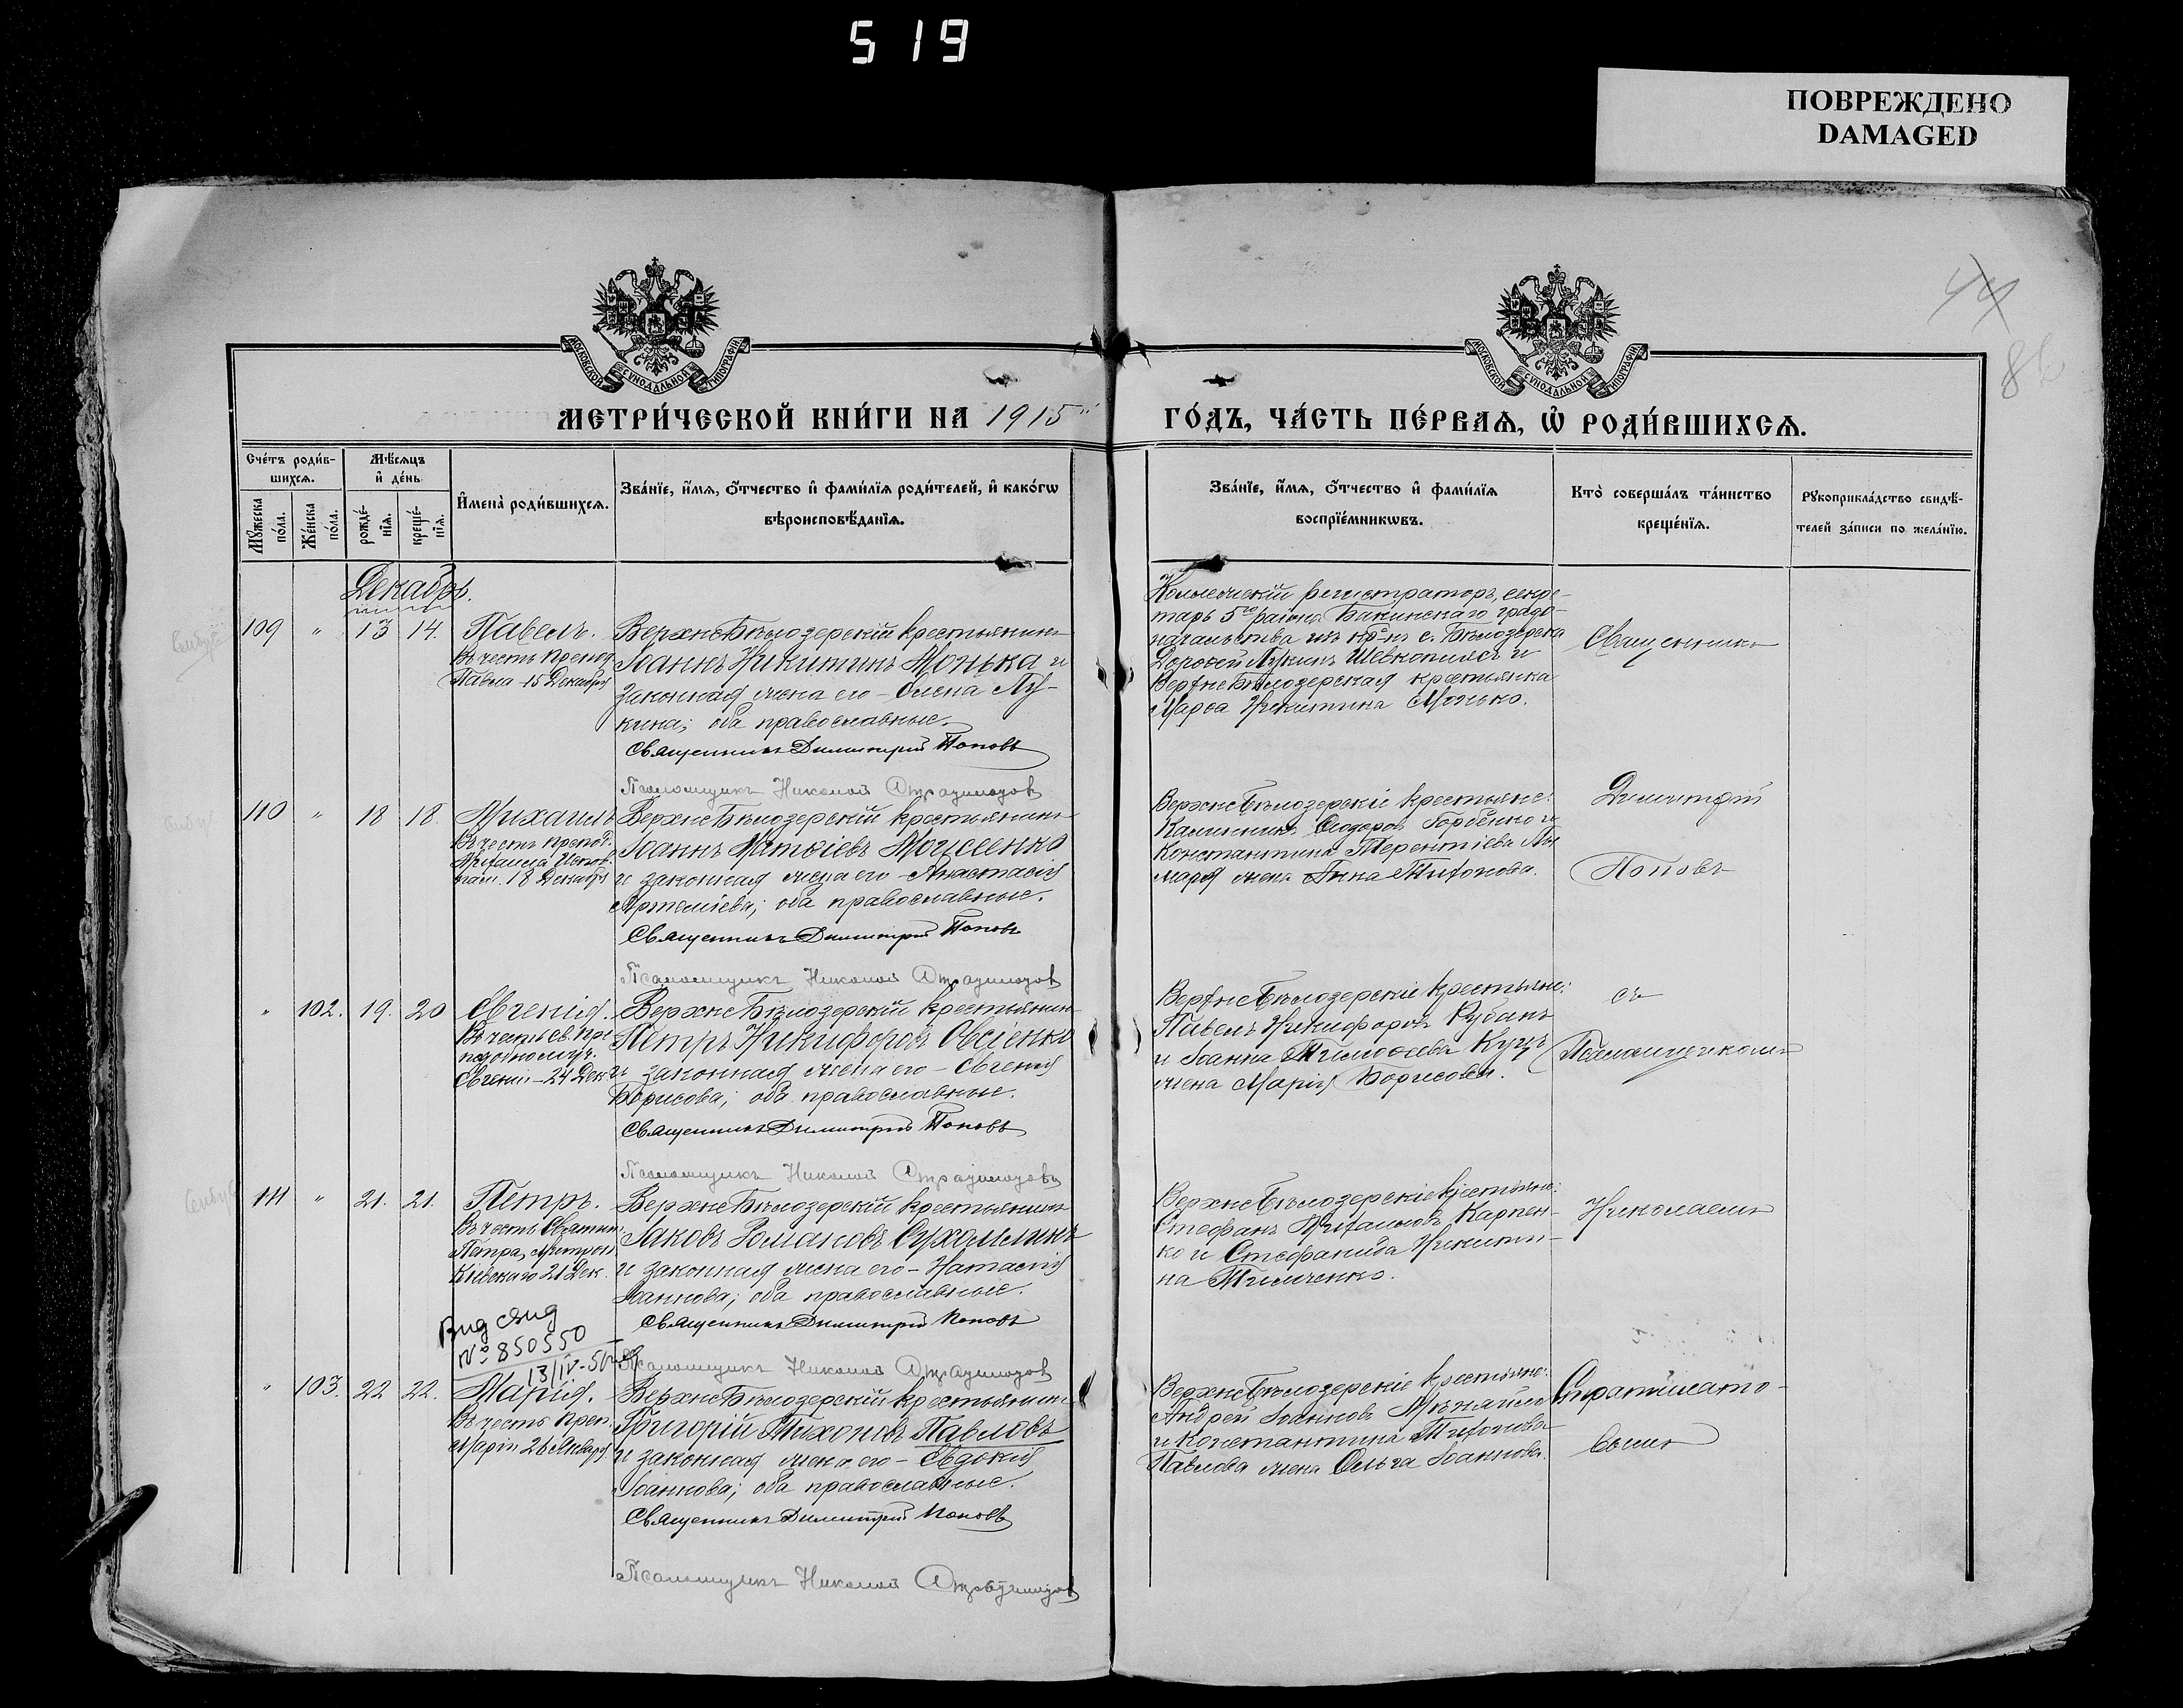 519
ПОВРЕЖДЕНО
DAMAGED
МОСКОВСКОЙ СѴНОДАЛЬНОЙ ТИПОГРАФІИ
МОСКОВСКОЙ СѴНОДАЛЬНОЙ ТИПОГРАФІИ
44
86
МЕТРИ́ЧЕСКОЙ КНИ́ГИ НА 1915
ГО́ДЪ, ЧА́СТЬ ПЕ́РВАѦ, Ѡ҆ РОДИ́ВШИХСѦ.
Сче́тъ роди́в-
шихсѧ.
Мꙋ́жеска по́ла.
Же́нска по́ла.
Мѣ́сѧцъ
и҆ де́нь
рожде́-
нїѧ.
креще́-
нїѧ.
И҆мена̀ роди́вшихсѧ.
Зва́нїе, и҆́мѧ, ѻ҆́тчество и҆ фами́лїѧ роди́телей, и҆ како́гѡ
вѣроисповѣ́данїѧ.
Зва́нїе, и҆́мѧ, ѻ҆́тчество и҆ фами́лїѧ
воспрїе́мникѡвъ.
Кто̀ соверша́лъ та́инство
креще́нїѧ.
Рꙋкоприкла́дство свидѣ́-
телей за́писи по жела́нїю.
Декабрь.
109 " 13 14. Павелъ.
Въ честь препод.
Павла - 15 Декабря
Верхне Бѣлозерскій крестьянинъ
Іоаннъ Никитинъ Монька и
законная жена его - Елена Лу-
кина; оба православные.
Священникъ Димитрій Поповъ
Псаломщикъ Николай
Коллежскій регистраторъ, секре-
тарь 5го района Бакинскаго градо-
начальства изъ кр-нъ с. Бѣлозерска
Дороѳей Лукинъ и
Верхне Бѣлозерская крестьянка
Марѳа Никитина Монько.
Священникъ
110 " 18 18. Михаилъ
Въ честь препод.
Михаила Испов.
пам. 18 Декабря
Верхне Бѣлозерскій крестьянинъ
Іоаннъ Матѳіевъ Мойсеенко
и законная жена его - Анастасія
Артеміева; оба православные.
Священникъ Димитрій Поповъ
Псаломщикъ Николай
Верхне Бѣлозерскіе крестьяне:
Каллиникъ Ѳеодоровъ Горбенко и
Константина Терентіева
жена Анна Тихонова.
Димитрій
Поповъ
" 102. 19. 20 Евгенія.
Въ честь св. пре-
подобномуч.
Евгеніи - 24 Дек.
Верхне Бѣлозерскій крестьянинъ
Петръ Никифоровъ Овсіенко
и законная жена его - Евгенія
Борисова; оба православные.
Священникъ Димитрій Поповъ
Псаломщикъ Николай
Верхне Бѣлозерскіе крестьяне:
Павелъ Никифоровъ Рубанъ
и Іоанна Тимоѳеева Куцъ
жена Марія Борисова.
съ
Псаломщикомъ
111 " 21. 21. Петръ.
Въ честь Святит.
Петра, Митроп.
Кіевскаго 21 Дек.
Верхне Бѣлозерскій крестьянинъ
Іаковъ Романовъ Сухомлинъ
и законная жена его - Наталія
Іоаннова; оба православные.
Священникъ Димитрій Поповъ
Псаломщикъ Николай
Верхне Бѣлозерскіе крестьяне:
Стефанъ Михаиловъ Карпен-
ко и Стефанида Никити-
на Тимченко.
Николаемъ
№ 850550
" 103. 22 22. Марія.
Въ честь преп.
Маріи 26 Января.
Верхне Бѣлозерскій крестьянинъ
Григорій Тихоновъ Павловъ
и законная жена его - Евдокія
Іоаннова; оба православные.
Священникъ Димитрій Поповъ
Псаломщикъ Николай
Верхне Бѣлозерскіе крестьяне:
Андрей Іоанновъ
и Константина Тихонова
Павлова жена Ольга Іоаннова.
Стратилато-
вымъ